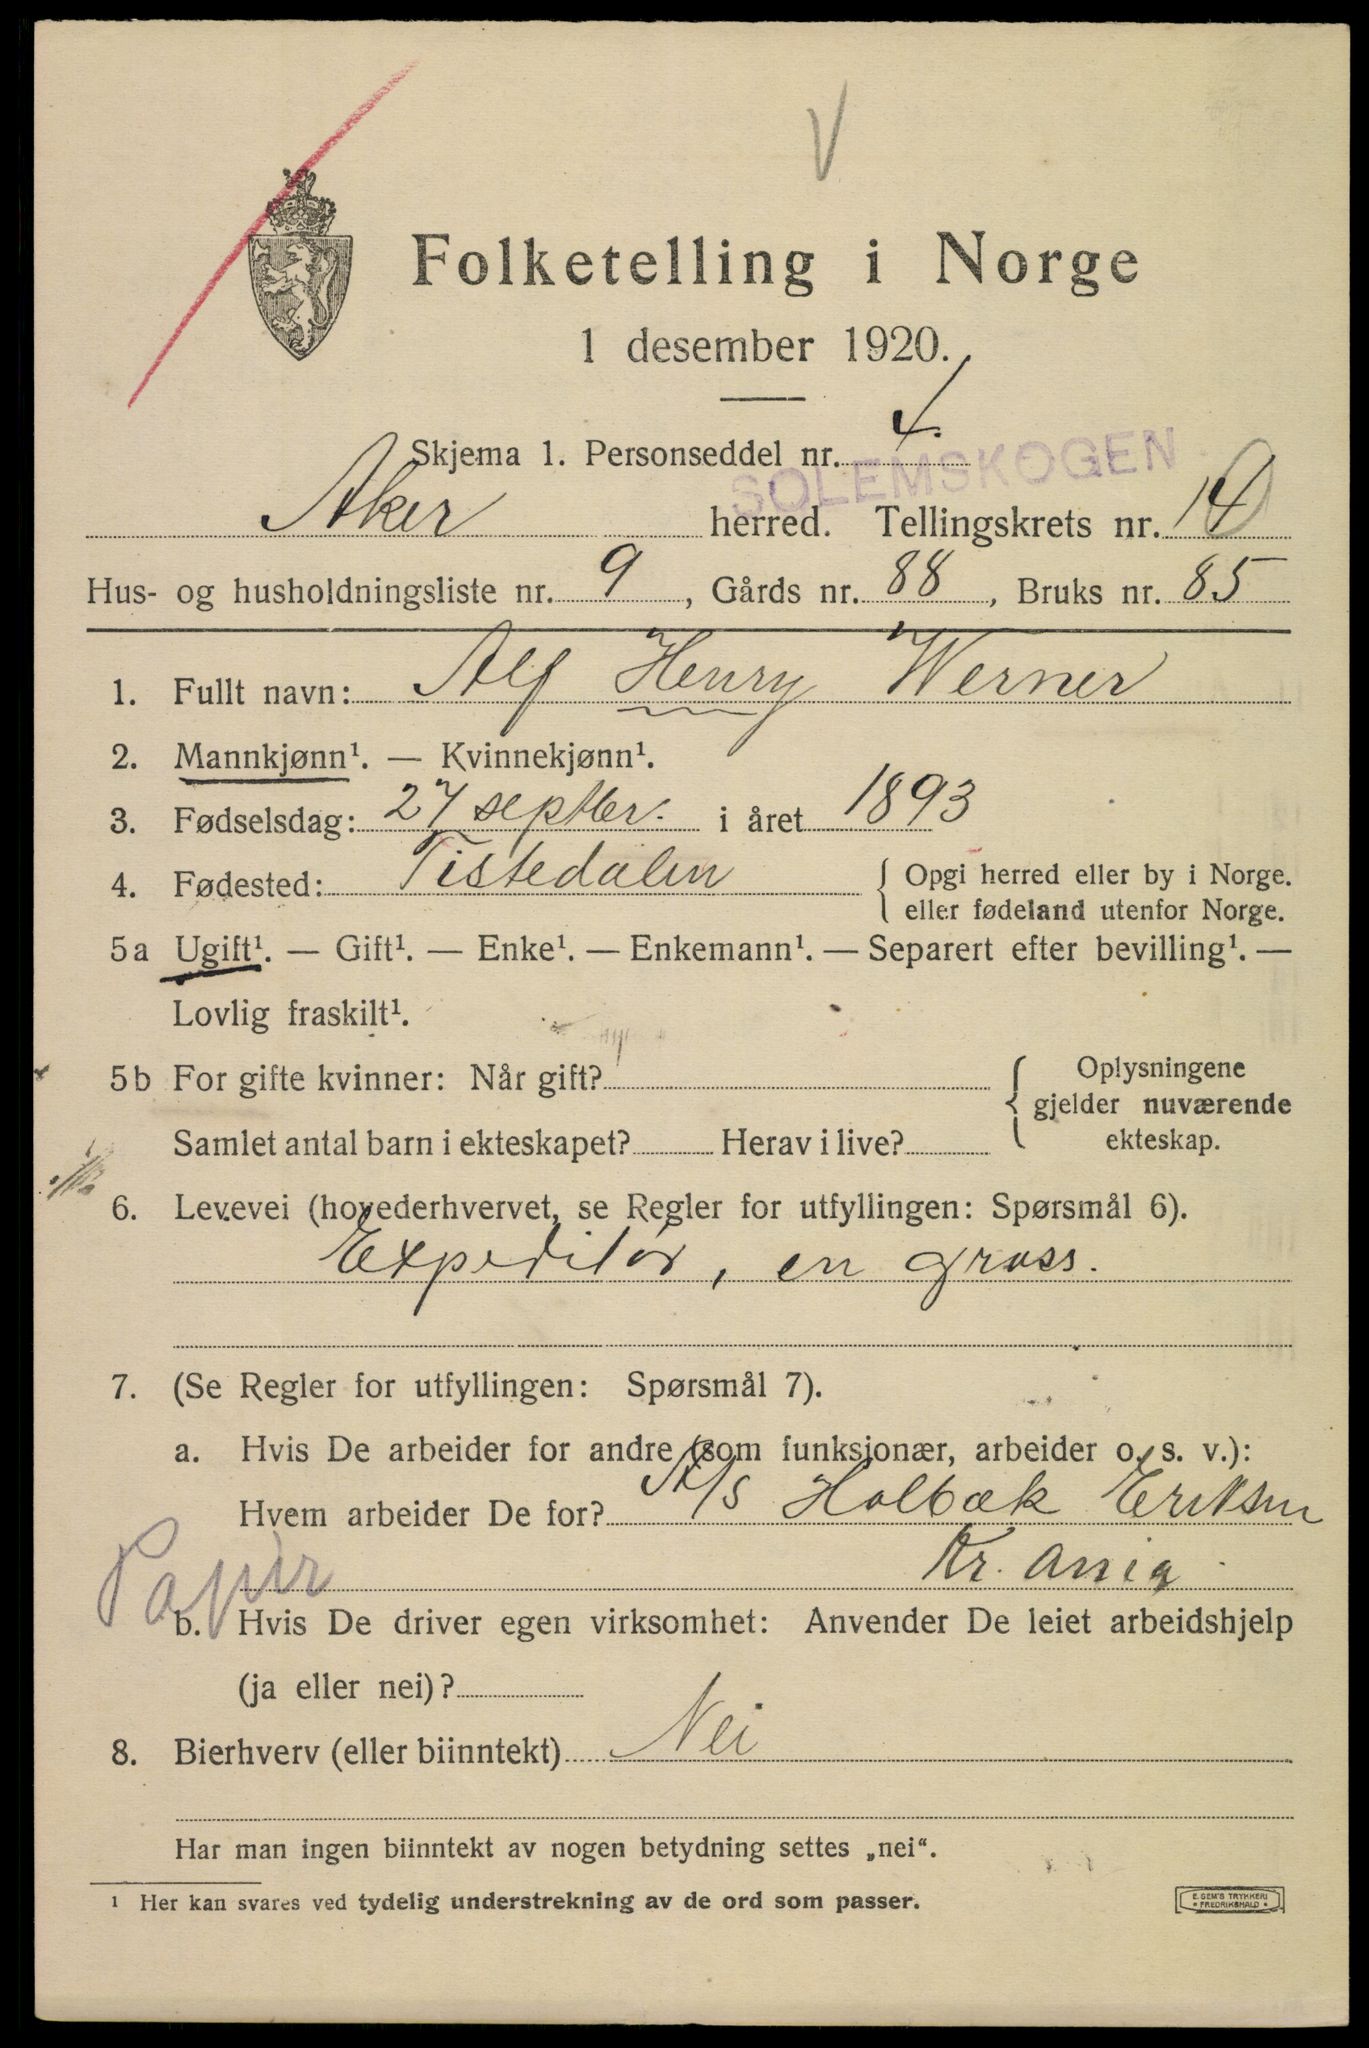 V
Folketelling i Norge
1 desember 1920.
Skjema 1. Personseddel nr. 4.
SOLEMSKOGEN
Aker herred. Tellingskrets nr. 14
Hus- og husholdningsliste nr. 9, Gårds nr. 88, Bruks nr. 85
1. Fullt navn: Alf Henry Werner
2. Mannkjønn¹. — Kvinnekjønn¹.
3. Fødselsdag: 27 septber. i året 1893
4. Fødested: Tistedalen { Opgi herred eller by i Norge.
eller fødeland utenfor Norge.
5a Ugift¹. — Gift¹. — Enke¹. — Enkemann¹. — Separert efter bevilling¹. —
Lovlig fraskilt¹.
5b For gifte kvinner: Når gift?
Samlet antal barn i ekteskapet? Herav i live?
{ Oplysningene
gjelder nuværende
ekteskap.
6. Levevei (hovederhvervet, se Regler for utfyllingen: Spørsmål 6).
Expeditør, en gross.
7. (Se Regler for utfyllingen: Spørsmål 7).
a. Hvis De arbeider for andre (som funksjonær, arbeider o. s. v.):
Hvem arbeider De for? A/s Holbæk Eriksen
Kr. ania
Papir
b. Hvis De driver egen virksomhet: Anvender De leiet arbeidshjelp
(ja eller nei)?
8. Bierhverv (eller biinntekt) Nei
Har man ingen biinntekt av nogen betydning settes „nei“.
¹ Her kan svares ved tydelig understrekning av de ord som passer.
E. SEM'S TRYKKERI
* FREDRIKSHALD *